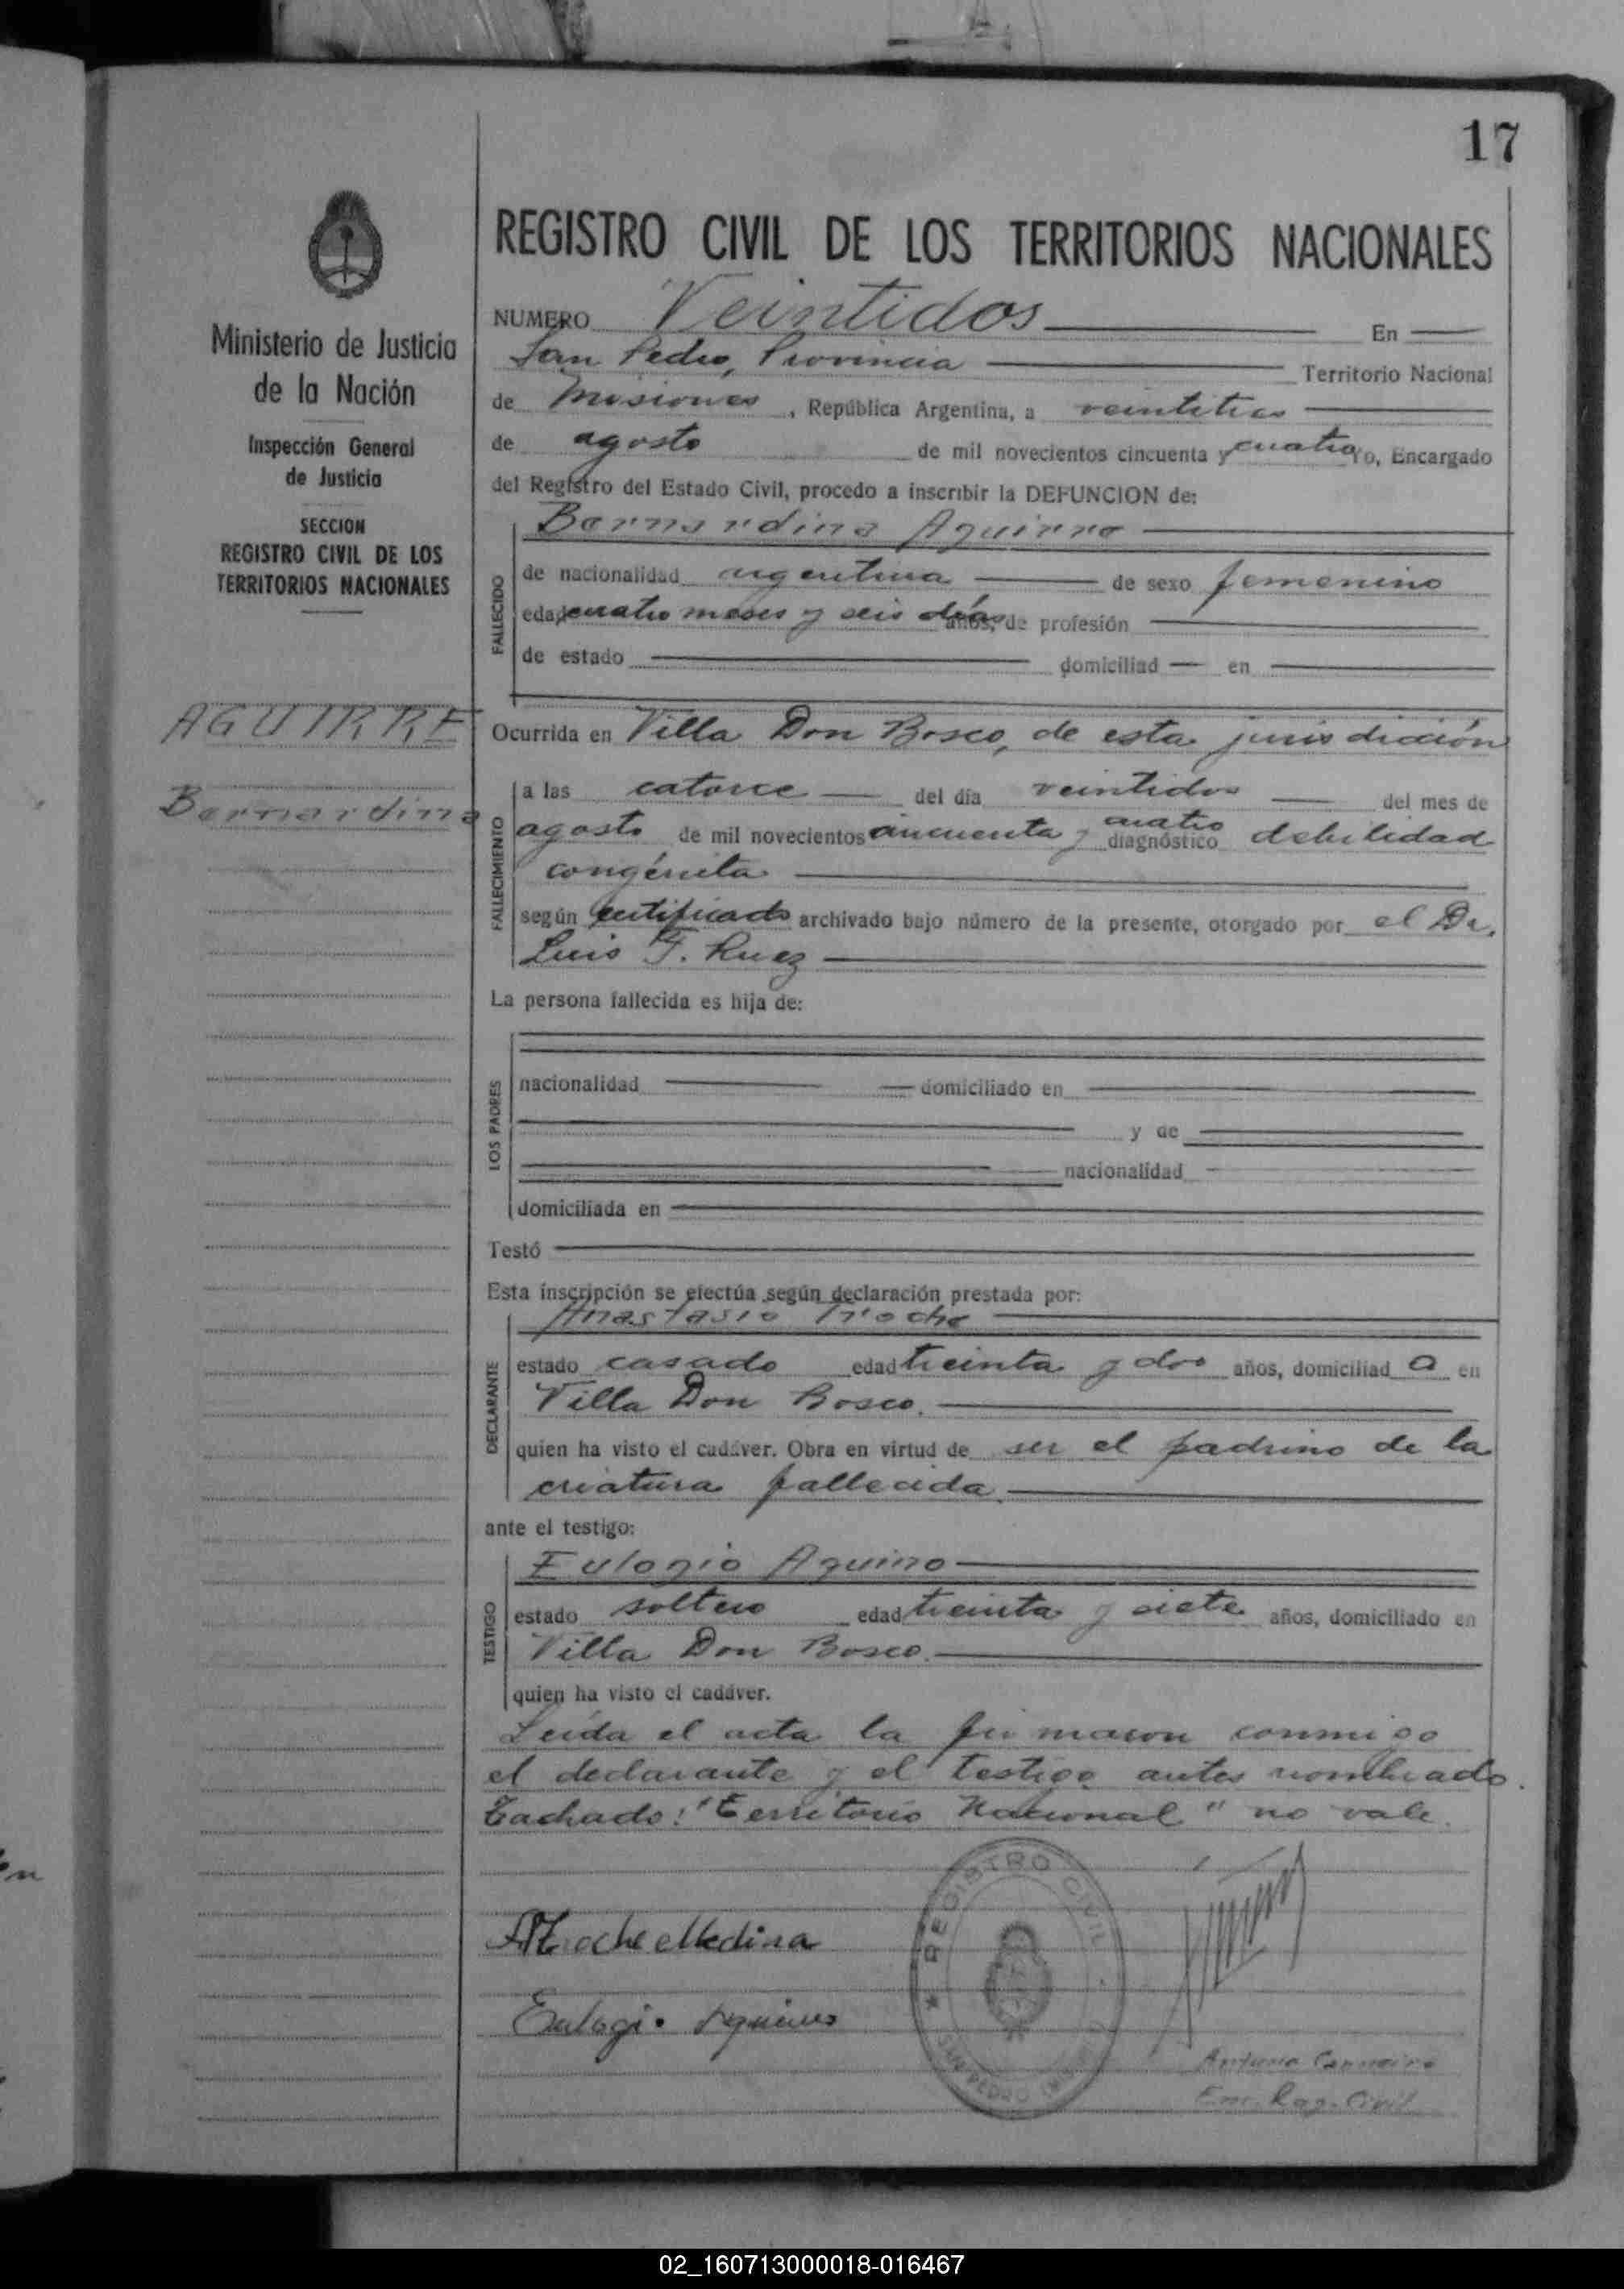 17
REGISTRO CIVIL DE LOS TERRITORIOS NACIONALES
Ministerio de Justicia
de la Nación
Inspección General
de Justicia
SECCION
REGISTRO CIVIL DE LOS
TERRITORIOS NACIONALES
AGUIRRE
Bernardina
NUMERO Veintidos En
San Pedro, Provincia Territorio Nacional
de Misiones, República Argentina, a veintitres
de agosto de mil novecientos cincuenta y cuatro Yo, Encargado
del Registro del Estado Civil, procedo a inscribir la DEFUNCION de:
FALLECIDO
Bernardina Aguirre
de nacionalidad argentina de sexo femenino
edad cuatro meses y seis días años, de profesión
de estado domiciliad en
Ocurrida en Villa Don Bosco, de esta jurisdicción
FALLECIMIENTO
a las catorce del día veintidos del mes de
agosto de mil novecientos cincuenta y cuatro diagnóstico debilidad
congénita
según certificado archivado bajo número de la presente, otorgado por el Dr.
Luis F. Ruez
La persona fallecida es hija de:
LOS PADRES
nacionalidad domiciliado en
y de
nacionalidad
domiciliada en
Testó
Esta inscripción se efectúa según declaración prestada por:
DECLARANTE
Anastasio Troche
estado casado edad treinta y dos años, domiciliad o en
Villa Don Bosco.
quien ha visto el cadáver. Obra en virtud de ser el padrino de la
criatura fallecida.
ante el testigo:
TESTIGO
Eulogio Aquino
estado soltero edad treinta y siete años, domiciliado en
Villa Don Bosco.
quien ha visto el cadáver.
Leída el acta la firmaron conmigo
el declarante y el testigo antes nombrado.
Tachado: "Territorio Nacional" no vale.
REGISTRO CIVIL
SAN PEDRO
ATroche Medina
Eulogio Aquino
Antonio
Enc. Reg. Civil
02_160713000018-016467